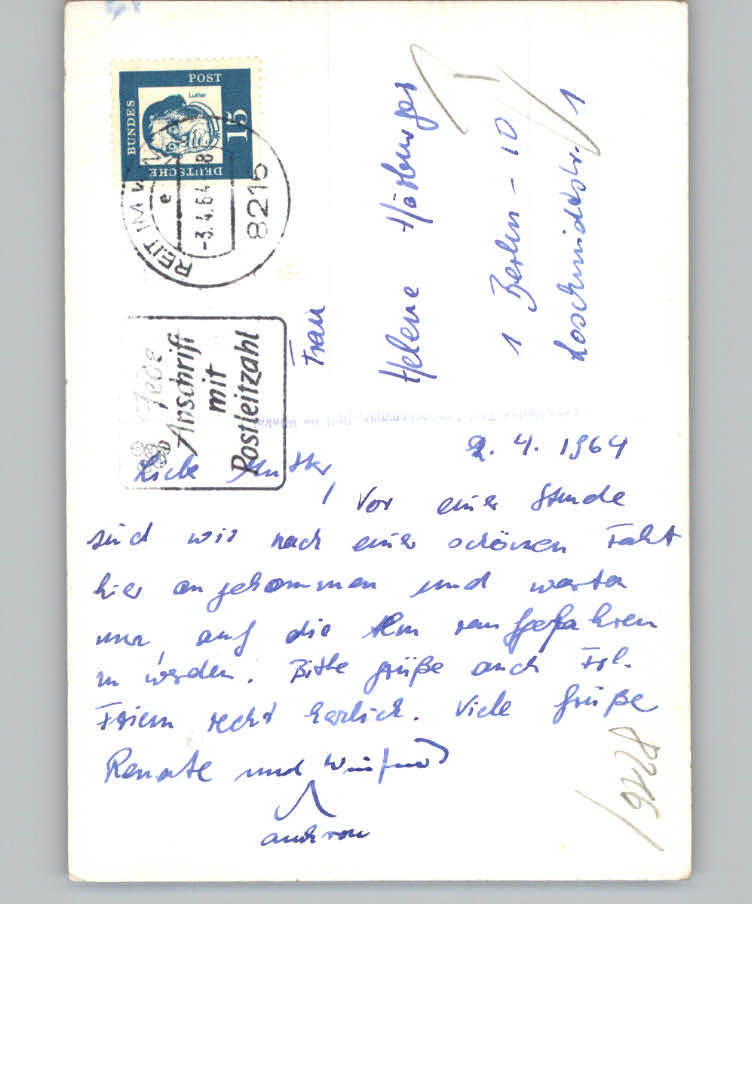 DEUTSCHE
BUNDES
POST
15
Luther
REIT IM W
e
-3.4.64-8
8216
Jede
Anschrift
mit
Postleitzahl
Frau
Helene
1 Berlin - 10
Loschmidtstr. 1
2. 4. 1964
Liebe Mutter
! Vor einer Stunde
sind wir nach einer schönen Fahrt
hier angekommen und warten
nur, auf die Alm raufgefahren
zu werden. Bitte grüße auch Frl.
recht herzlich. Viele Grüße
Renate und Winfried
auch von